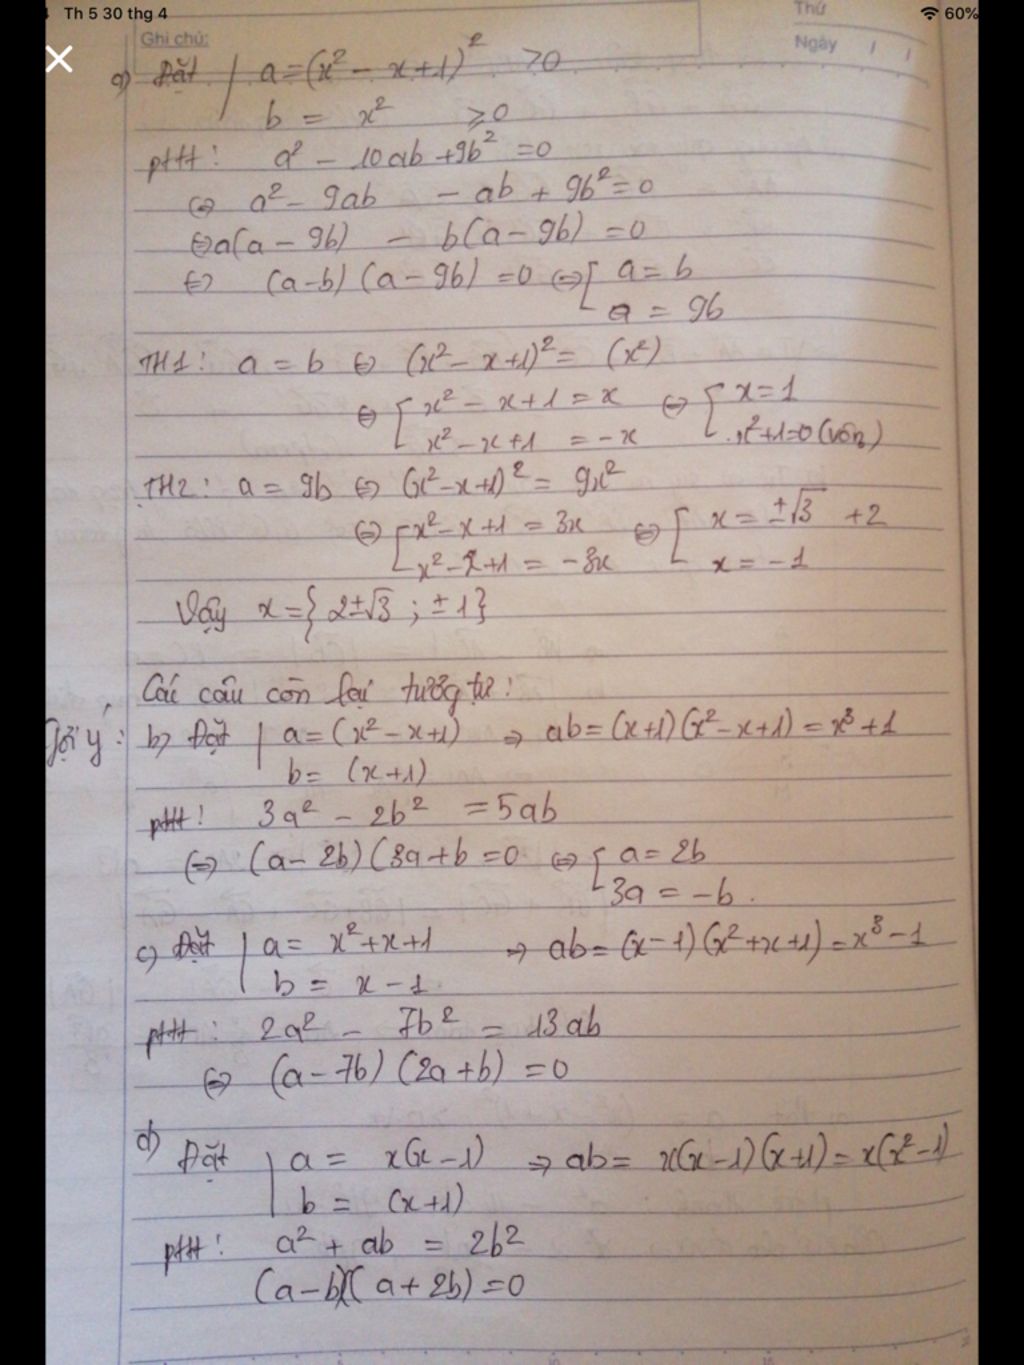 Th 5 30 thg 4
60%
Ghi chú:
Thứ
Ngày
a) Đặt | a = (x² - x + 1)² > 0
b = x² ≥ 0
ptt: a² - 10ab + 9b² = 0
⇔ a² - 9ab - ab + 9b² = 0
⇔ a(a - 9b) - b(a - 9b) = 0
⇔ (a - b) (a - 9b) = 0 ⇔ [ a = b
a = 9b
TH1: a = b ⇔ (x² - x + 1)² = (x²)
⇔ [ x² - x + 1 = x ⇔ [ x = 1
x² - x + 1 = -x x² + 1 = 0 (vôn)
TH2: a = 9b ⇔ (x² - x + 1)² = 9x²
⇔ [ x² - x + 1 = 3x ⇔ [ x = ±√3 + 2
x² - x + 1 = -3x x = -1
Vậy x = { 2±√3 ; ±1 }
Các câu còn lại tương tự:
Gợi ý: b) Đặt | a = (x² - x + 1) ⇒ ab = (x+1)(x² - x + 1) = x³ + 1
b = (x+1)
ptt: 3a² - 2b² = 5ab
⇔ (a - 2b) (3a + b = 0 ⇔ [ a = 2b
3a = -b.
c) Đặt | a = x² + x + 1 ⇒ ab = (x - 1) (x² + x + 1) = x³ - 1
b = x - 1.
ptt: 2a² - 7b² = 13ab
⇔ (a - 7b) (2a + b) = 0
d) Đặt | a = x(x - 1) ⇒ ab = x(x - 1)(x + 1) = x(x² - 1)
b = (x + 1)
ptt: a² + ab = 2b²
(a - b)(a + 2b) = 0